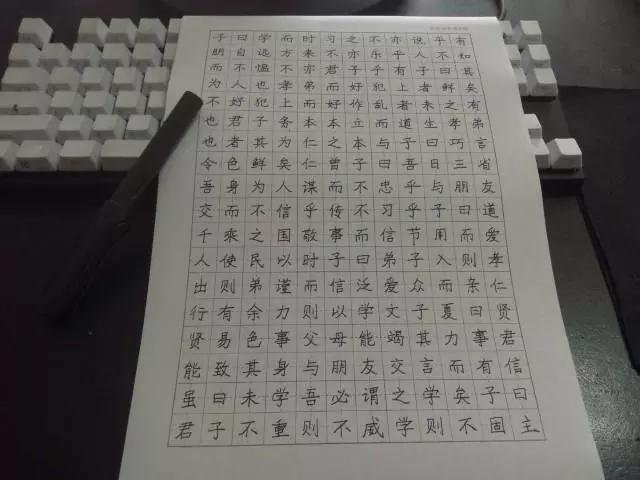 子曰学而时习之不亦说乎有
朋自远方来不亦乐乎人不知
而不愠不亦君子乎有子曰其
为人也孝弟而好犯上者鲜矣
不好犯上而好作乱者未之有
也君子务本本立而道生孝弟
也者其为仁之本与子曰巧言
令色鲜矣仁曾子曰吾日三省
吾身为人谋而不忠乎与朋友
交而不信乎传不习乎子曰道
千乘之国敬事而信节用而爱
人使民以时子曰弟子入则孝
出则弟谨而信泛爱众而亲仁
行有余力则以学文子夏曰贤
贤易色事父母能竭其力事君
能致其身与朋友交言而有信
虽曰未学吾必谓之学矣子曰
君子不重则不威学则不固主